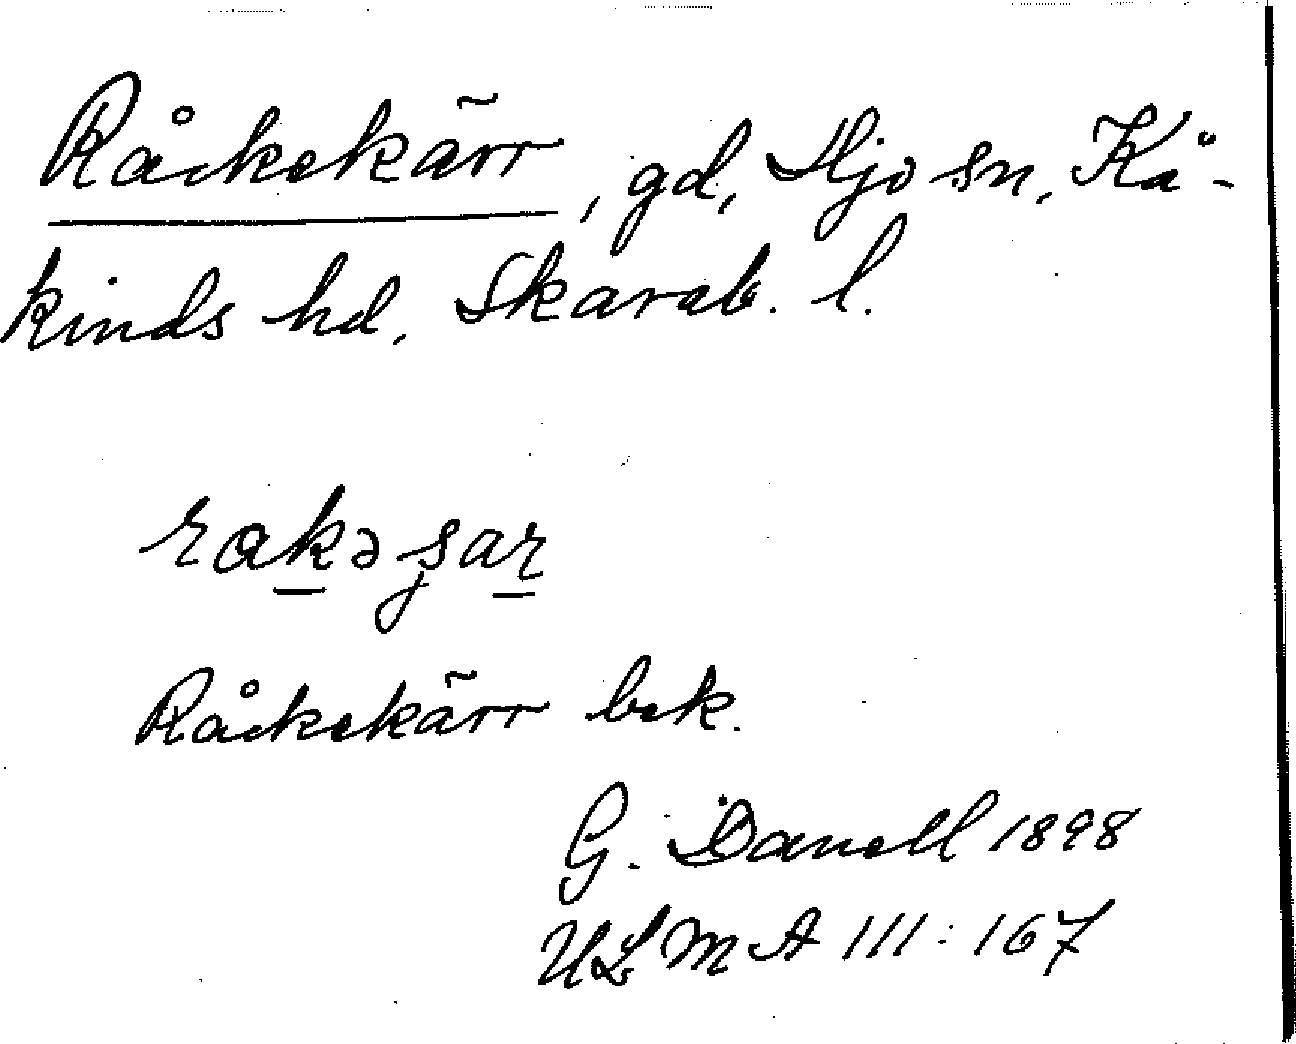 Råckekärr, gd, Hjo sn, Kå-
kinds hd, Skarab. l.
rakəʂar
Råckekärr bek.
G. Danell 1898
ULMA 111:167